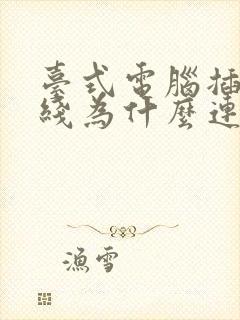 臺式電腦插
綫為什麼連
漁雪